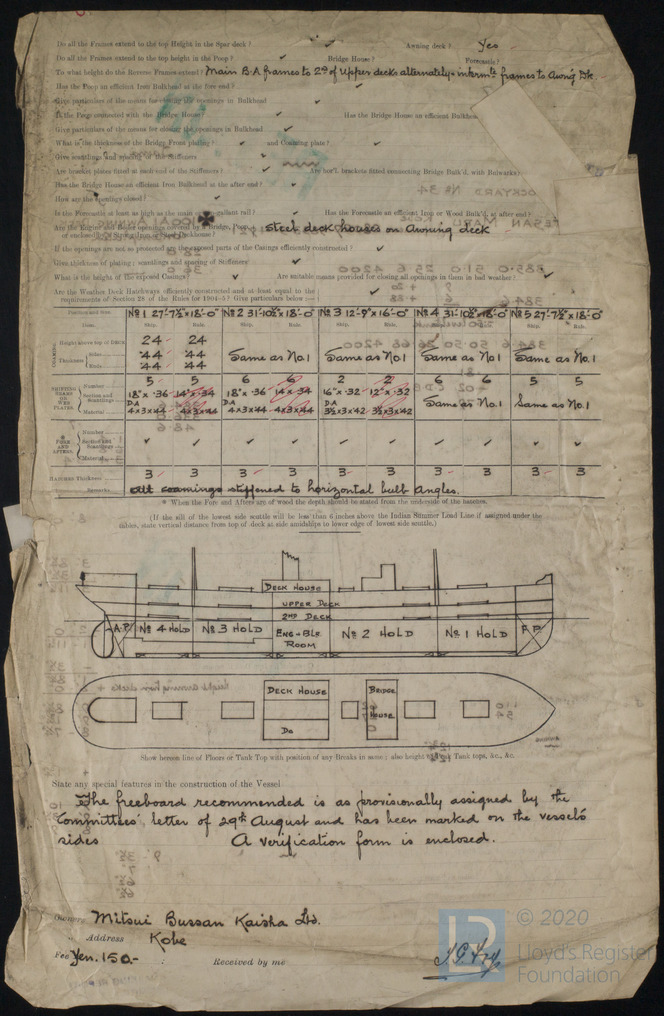 Do all the Frames extend to the top Height in the Spar deck? ✓ Awning deck? Yes
Do all the Frames extend to the top height in the Poop? ✓ Bridge House? Forecastle?
To what height do the Reverse Frames extend? Main B.A frames to 2nd & Upper decks alternately - interm'te frames to Awng Dk
Has the Poop an efficient Iron Bulkhead at the fore end? ✓
Give particulars of the means for closing the openings in Bulkhead
Is the Poop connected with the Bridge House? Has the Bridge House an efficient Bulkhead
Give particulars of the means for closing the openings in Bulkhead ✓
What is the thickness of the Bridge Front plating? ✓ and Coaming plate? ✓
Give scantlings and spacing of the Stiffeners
Are bracket plates fitted at each end of the Stiffeners? Are hor'l. brackets fitted connecting Bridge Bulk'd, with Bulwarks?
Has the Bridge House an efficient Iron Bulkhead at the after end? ✓
How are the openings closed? ✓
Is the Forecastle at least as high as the main or top-gallant rail? ✓ Has the Forecastle an efficient Iron or Wood Bulk'd, at after end?
Are the Engine and Boiler openings covered by a Bridge, Poop, steel deck houses on Awning deck
or enclosed by a Strong Iron or Steel Deckhouse?
If the openings are not so protected are the exposed parts of the Casings efficiently constructed? ✓
Give thickness of plating; scantlings and spacing of Stiffeners ✓
What is the height of the exposed Casings? Are suitable means provided for closing all openings in them in bad weather? ✓
Are the Weather Deck Hatchways efficiently constructed and at least equal to the
requirements of Section 28 of the Rules for 1904-5? Give particulars below:—
Position and Size No 1 27'-7½" x 18'-0" No 2 31'-10½" x 18'-0" No 3 12'-9" x 16'-0" No 4 31'-10½" x 18'-0" No 5 27'-7½" x 18'-0"
Item. Ship. Rule. Ship. Rule. Ship. Rule. Ship. Rule. Ship. Rule.
COAMING
Height above top of Beams 24 - 24
Thickness Sides .44 .44 Same as No.1 Same as No.1 Same as No.1 Same as No.1
Ends .44 .44
SHIFTING BEAMS OR WEB PLATES
Number 5 5 6 6 2 2 6 6 5 5
Section and Scantlings 18" x .36 14" x .34 18" x .36 14 x .34 16" x .32 12" x .32 Same as No.1 Same as No.1
Material D.A 4x3x44 4x3x44 D.A 4x3x44 4x3x44 D.A 3½x3x42 3½x3x42
FORE AND AFTERS.
Number ✓ ✓ ✓ ✓ ✓ ✓ ✓ ✓ ✓ ✓
Section and Scantlings
Material
HATCHES Thickness 3 3 3 3 3 3 3 3 3 3
Remarks All coamings stiffened to horizontal bulb angles.
* When the Fore and Afters are of wood the depth should be stated from the underside of the hatches.
(If the sill of the lowest side scuttle will be less than 6 inches above the Indian Summer Load Line if assigned under the
tables, state vertical distance from top of deck at side amidships to lower edge of lowest side scuttle.)
DECK HOUSE
UPPER DECK
2ND DECK
A.P. No 4 HOLD No 3 HOLD ENG & BLR ROOM No 2 HOLD No 1 HOLD F.P.
DECK HOUSE BRIDGE HOUSE
Do
Show hereon line of Floors or Tank Top with position of any Breaks in same; also height of Peak Tank tops, &c., &c.
State any special features in the construction of the Vessel
The freeboard recommended is as provisionally assigned by the
Committees' letter of 29th August and has been marked on the vessel's
sides A verification form is enclosed.
Owners Mitsui Bussan Kaisha Ltd.
Address Kobe
Fee Yen. 150.- : Received by me
© 2020
Lloyd's Register
Foundation